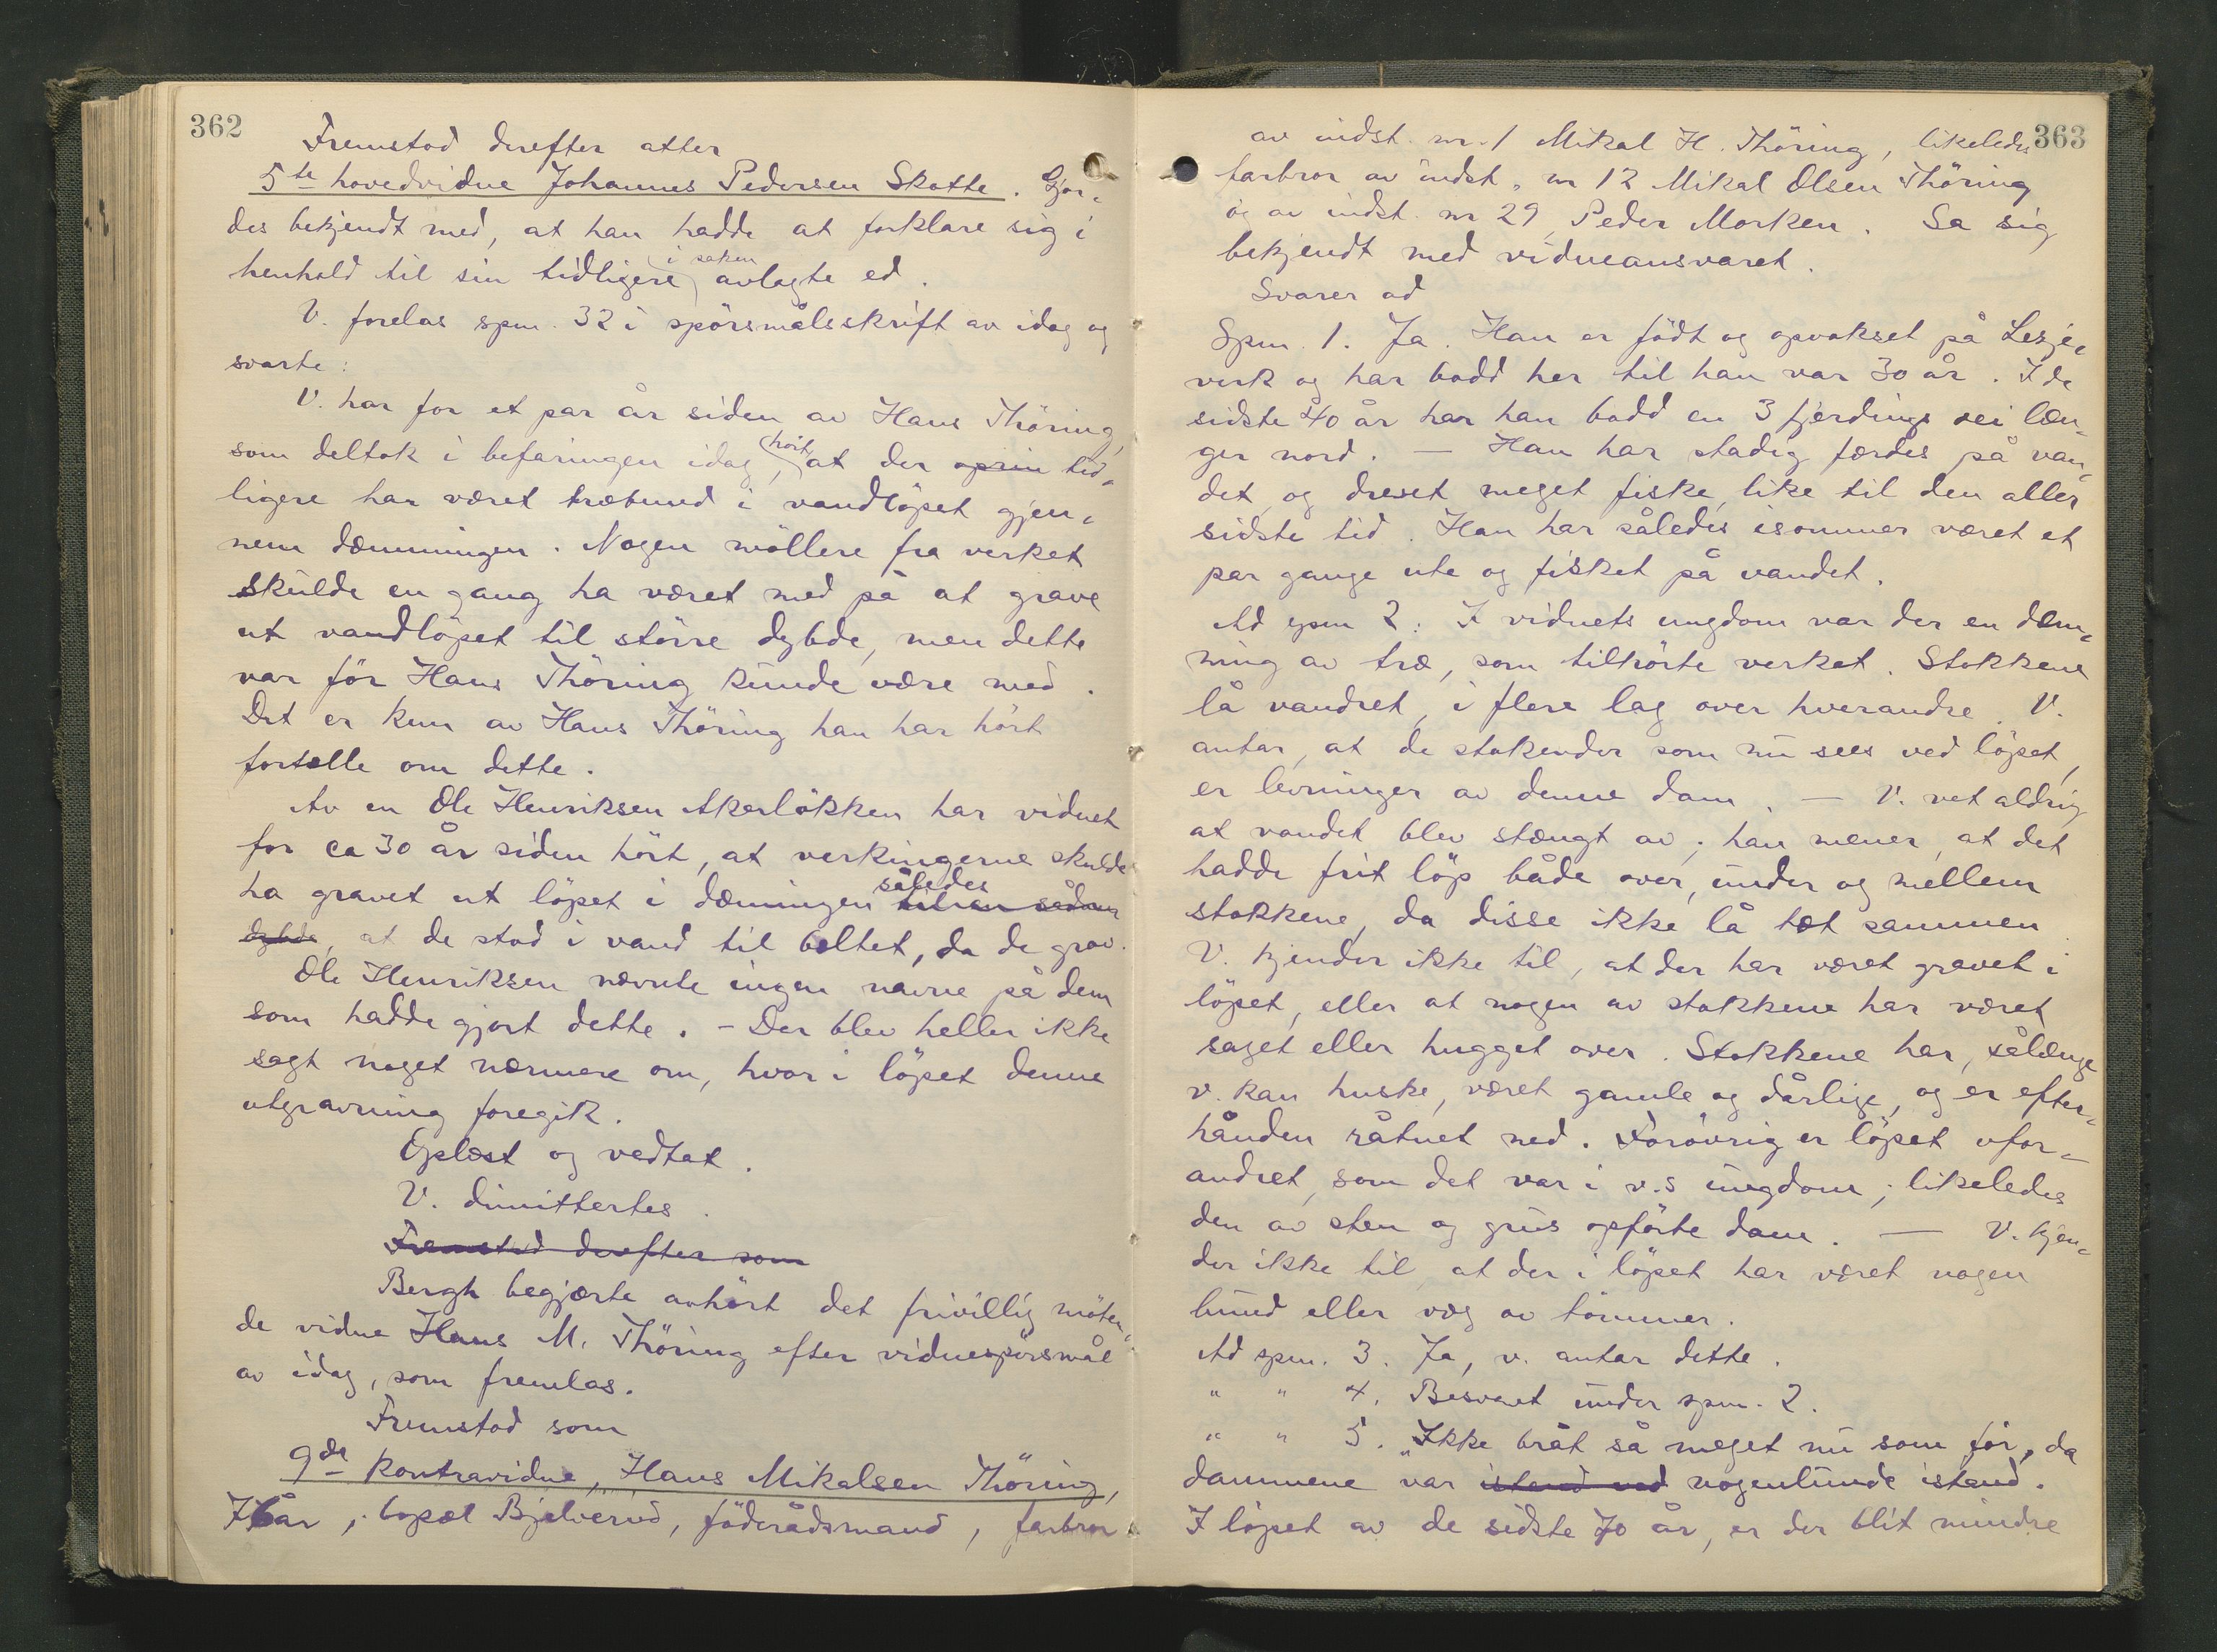 362
Fremstod derefter atter
5te hovedvidne Johannes Pedersen Skotte. Gjor-
des bekjendt med, at han hadde at forklare sig i
henhold til sin tidligere i saken avlagte ed.
V. forelas spm. 32 i spörsmålsskrift av idag og
svarte:
V. har for et par år siden av Hans Thöring,
som deltok i befaringen idag, hört at der oprin tid-
ligere har været træbund i vandlöpet gjen-
nem dæmningen. Nogen möllere fra verket
skulde en gang ha været med på at grave
ut vandlöpet til större dybde, men dette
var för Hans Thöring kunde være med.
Det er kun av Hans Thöring han har hört
fortælle om dette.
Av en Ole Henriksen Akerlökken har vidnet
for ca 30 år siden hört, at verkingerne skulde
ha gravet ut löpet i dæmningen således til en sådan
dybde, at de stod i vand til beltet, da de grov.
Ole Henriksen nævnte ingen navne på dem
som hadde gjort dette. - Der blev heller ikke
sagt noget nærmere om, hvor i löpet denne
utgravning foregik.
Oplæst og vedtat.
V. dimittertes.
Fremstod derefter som
Bergh begjærte avhört det frivillig möten-
de vidne Hans M. Thöring efter vidnespörsmål
av idag, som fremlas.
Fremstod som
9de kontravidne, Hans Mikalsen Thöring,
76 år, bopæl Bjelverud, föderådsmand, farbror
363
av indst. nr. 1 Mikal H. Thöring, likeledes
farbror av indst. nr 12 Mikal Olsen Thöring
og av indst. nr 29 Peder Morken. Sa sig
bekjendt med vidneansvaret.
Svarer ad
Spm. 1. Ja. Han er födt og opvokset på Lesje-
verk og har bodd her til han var 30 år. I de
sidste 40 år har han bodd en 3 fjerdings vei læn-
ger nord. — Han har stadig færdes på van-
det, og drevet meget fiske, like til den aller
sidste tid. Han har således isommer været et
par gange ute og fisket på vandet.
Ad spm 2. I vidnets ungdom var der en dæm-
ning av træ, som tilhörte verket. Stokkene
lå vandret, i flere lag over hverandre. V.
antar, at de stokender som nu sees ved löpet,
er levninger av denne dam. — V. vet aldrig
at vandet blev stængt av; han mener, at det
hadde frit löp både over, under og mellem
stokkene, da disse ikke lå tæt sammen.
V. kjender ikke til, at der har været gravet i
löpet, eller at nogen av stokkene har været
saget eller hugget over. Stokkene har, sålænge
v. kan huske, været gamle og dårlige, og er efter-
hånden råtnet ned. Forövrig er löpet ufor-
andret, som det var i v.s ungdom; likeledes
den av sten og grus opförte dam. — V. kjen-
der ikke til, at der i löpet har været nogen
bund eller væg av tömmer.
Ad spm. 3. Ja, v. antar dette.
" " 4. Besvaret under spm. 2.
" " 5. "Ikke bråt så meget nu som för, da
dammene var istand ved nogenlunde istand.
I löpet av de sidste 70 år, er der blit mindre